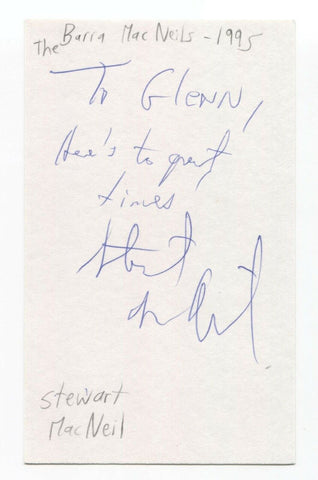 The Barra MacNeils - 1995
To Glenn,
Here's to great
times,
Stewart
MacNeil
stewart
MacNeil